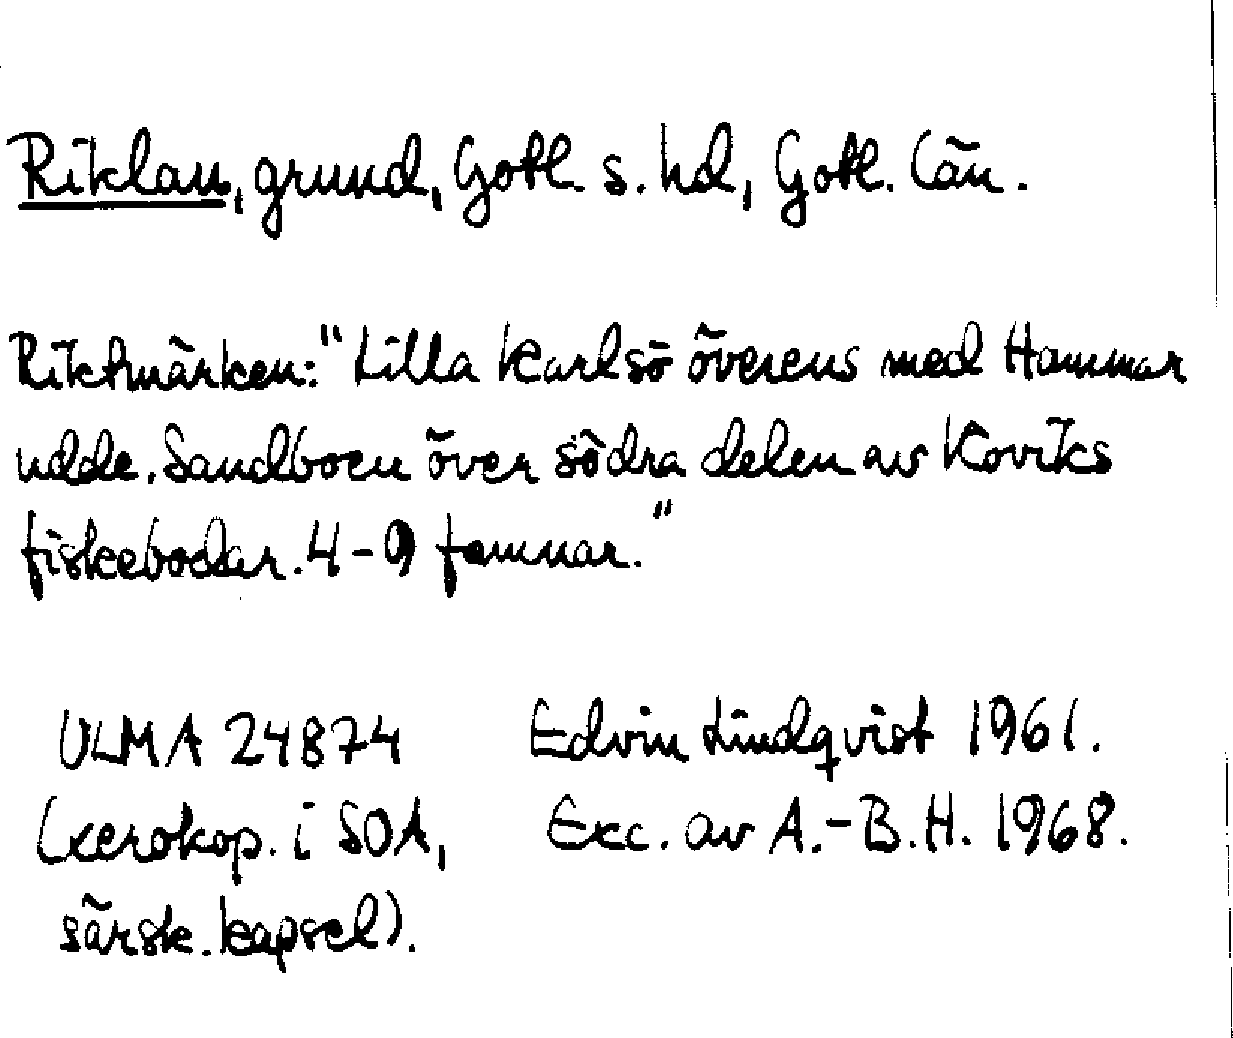 Riklau, grund, Gotl. s. hd, Gotl. län.
Riktmärken: "Lilla Karlsö överens med Hammar
udde. Sandboen över södra delen av Koviks
fiskebodar. 4-9 famnar."
ULMA 24874 Edvin Lindqvist 1961.
(xerokop. i SOA, Exc. av A.-B.H. 1968.
särsk. kapsel).